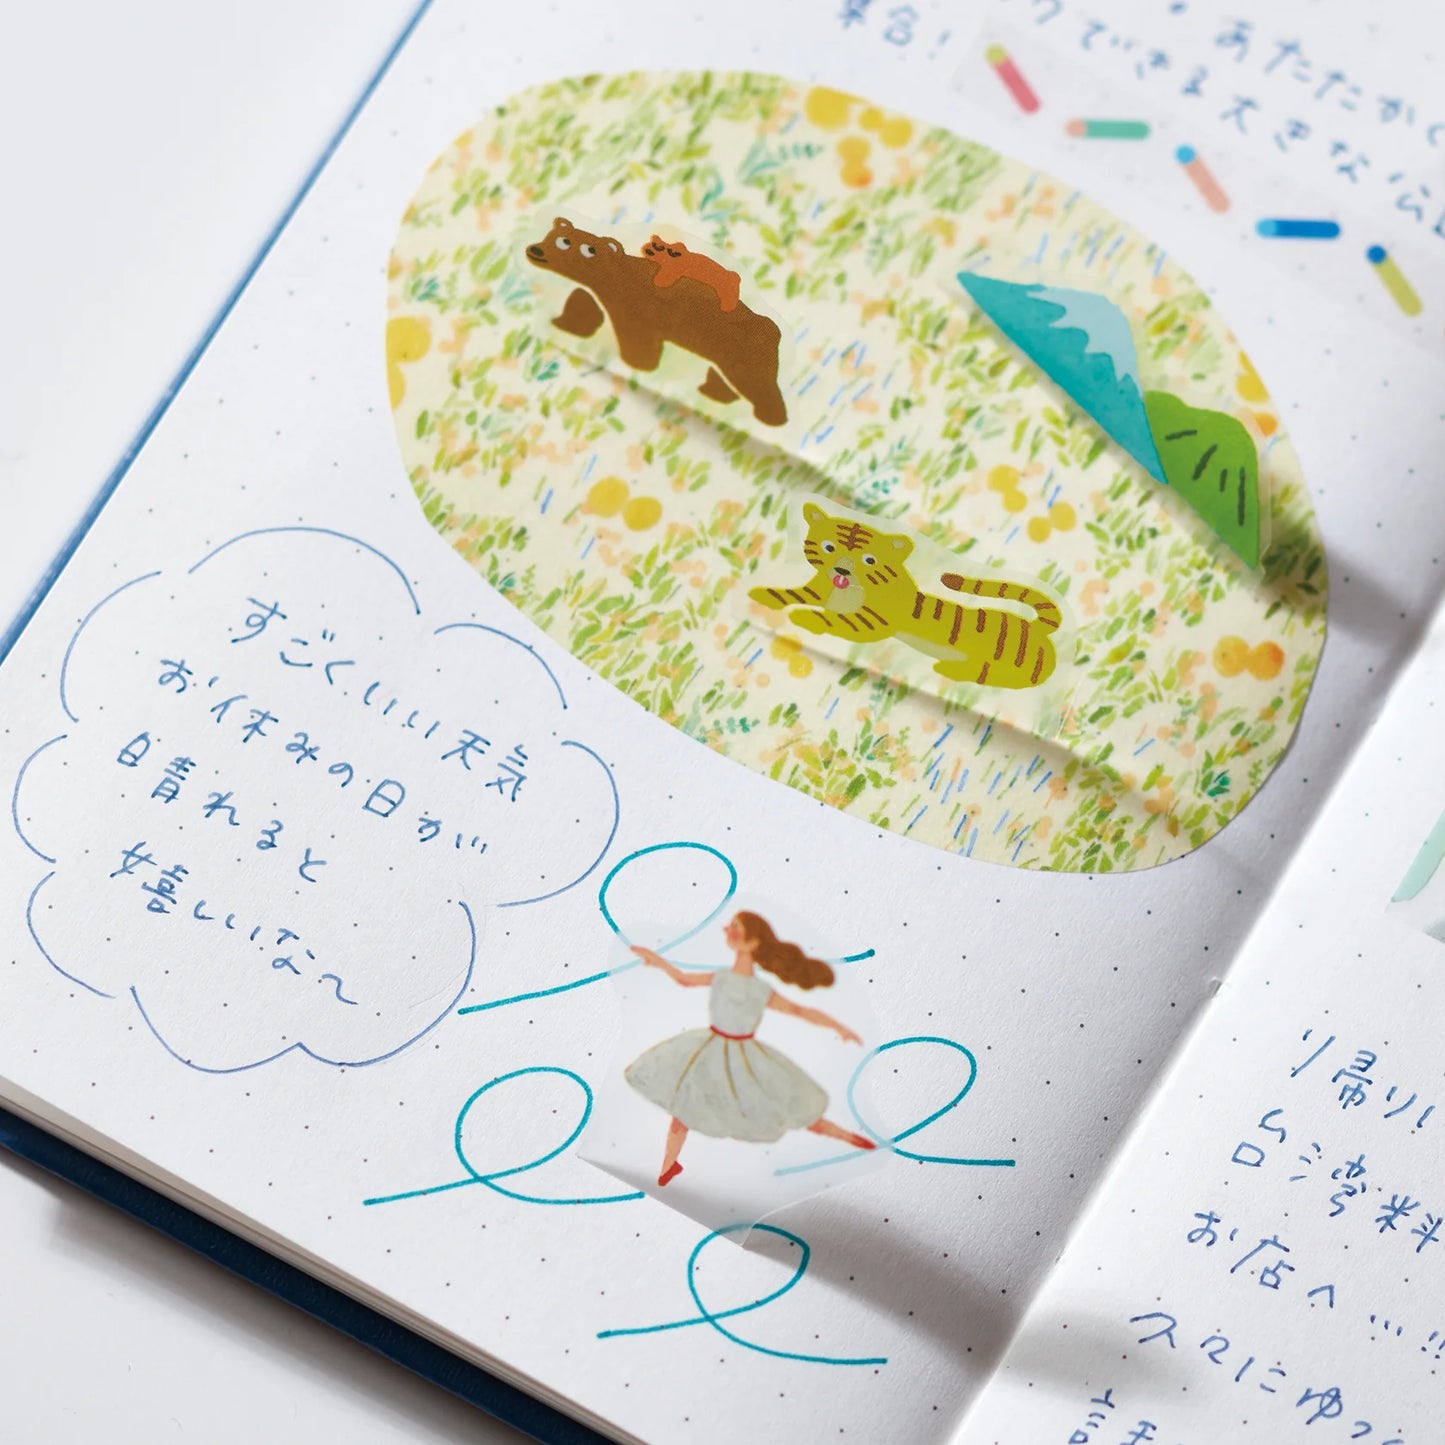 あたたかく
クできる大きな公園
集合!
すごくいい天気
お休みの日が
日晴れると
嬉しいな〜
り帰りし
台湾料
お店へ…!!
久々にゆっ